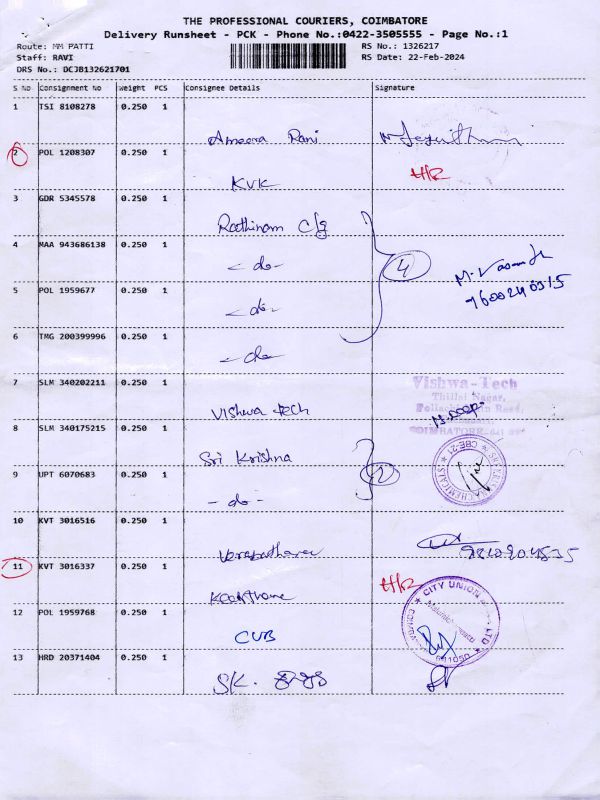 THE PROFESSIONAL COURIERS, COIMBATORE
Delivery Runsheet - PCK - Phone No.:0422-3505555 - Page No.:1
Route: MM PATTI RS No.: 1326217
Staff: RAVI RS Date: 22-Feb-2024
DRS No.: DCJB132621701
S No Consignment No Weight PCS Consignee Details Signature
1 TSI 8108278 0.250 1
Ameera Rani
2 POL 1208307 0.250 1
KVK
3 GDR 5345578 0.250 1
Rathinam clg
4 MAA 943686138 0.250 1
- do - 4
5 POL 1959677 0.250 1
- do -
6 TMG 200399996 0.250 1
- do -
7 SLM 340202211 0.250 1
Vishwa-Tech
Thillai Nagar,
Vishwa tech
8 SLM 340175215 0.250 1
Sri Krishna
9 UPT 6070683 0.250 1
- do - 2
CBE-21
10 KVT 3016516 0.250 1
11 KVT 3016337 0.250 1
12 POL 1959768 0.250 1
CUB
CITY UNION LTD
641050
13 HRD 20371404 0.250 1
SK.